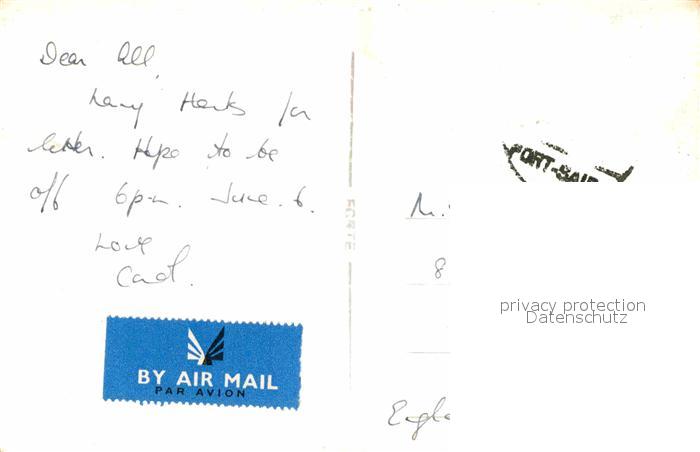 Dear All,
Many thanks for
letter. Hope to be
off 6pm. June. 6.
Love
Carol.
BY AIR MAIL
PAR AVION
FORTE
PORT-SAID
M
8
privacy protection
Datenschutz
Engla